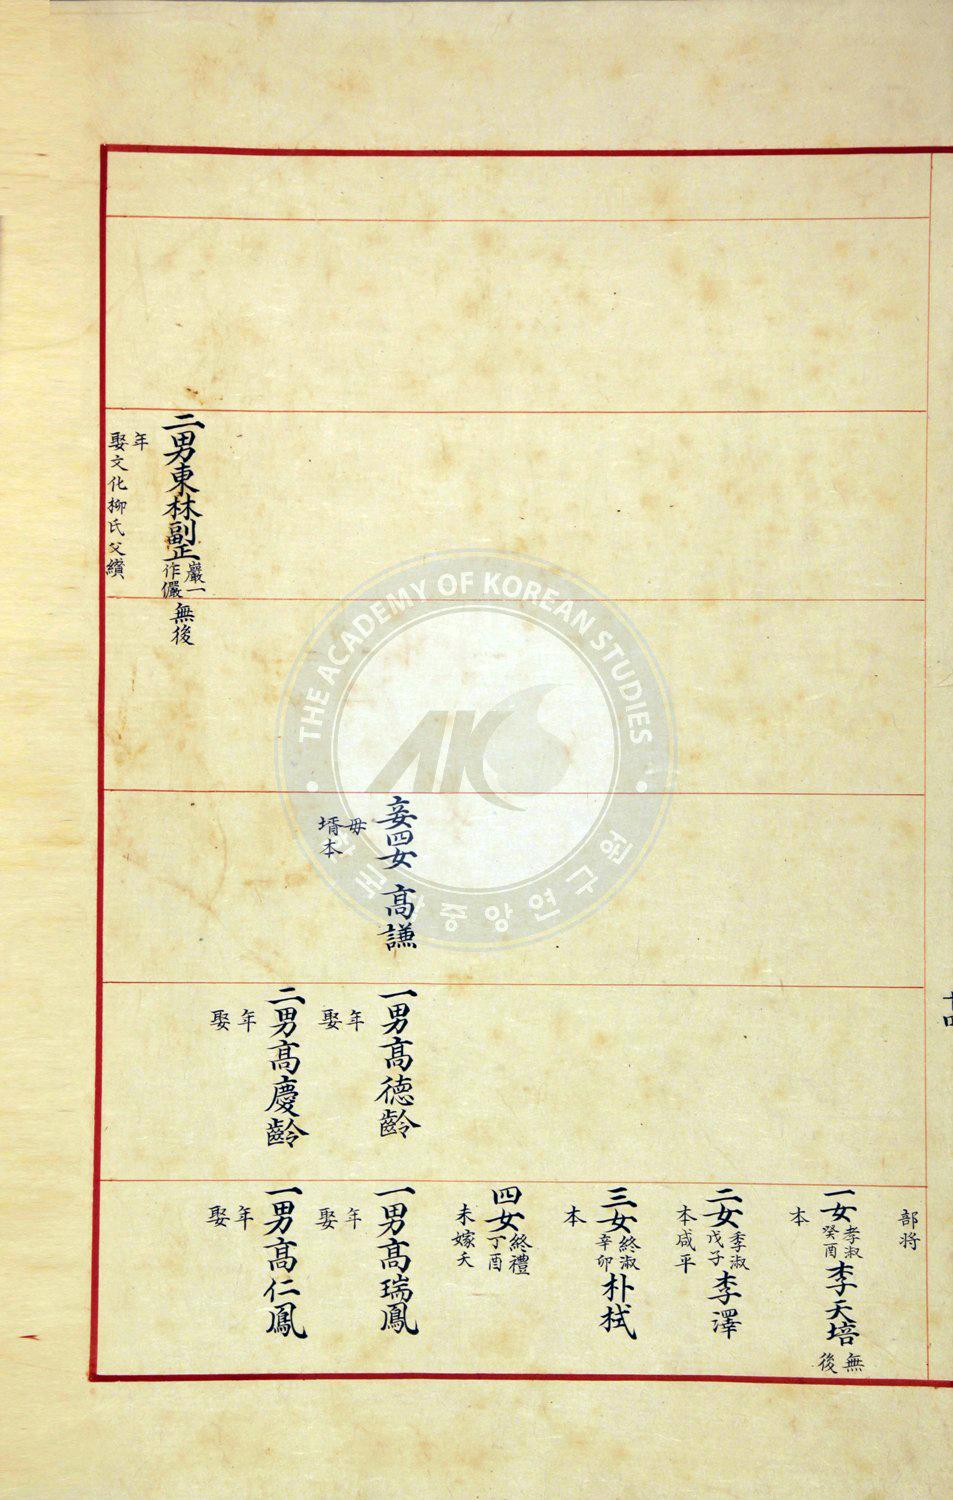 二男東林副正巖一作儼無後
年
娶文化柳氏父纘
妾四女 高謙
母
壻本
一男高德齡
年
娶
二男高慶齡
年
娶
部將
一女孝淑癸酉李天培無後
本
二女季淑戊子李澤
本咸平
三女終淑辛卯朴栻
本
四女終禮丁酉
未嫁夭
一男高瑞鳳
年
娶
一男高仁鳳
年
娶
THE ACADEMY OF KOREAN STUDIES
AKS
한국학중앙연구원